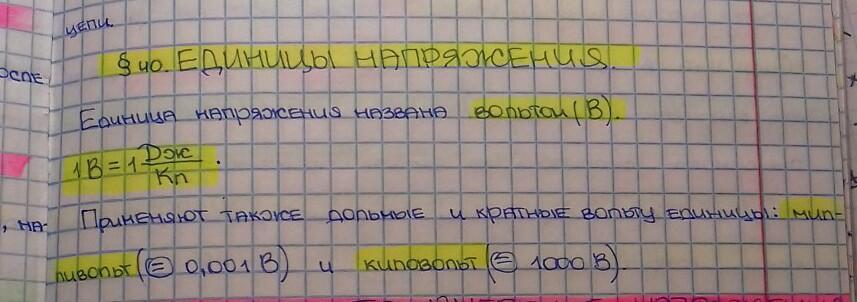 цепи.
§ 40. ЕДИНИЦЫ НАПРЯЖЕНИЯ.
Единица напряжения названа вольтом (В).
1 В = 1 Дж/Кл.
, на- Применяют также дольные и кратные вольту единицы: мил-
ливольт (= 0,001 В) и киловольт (= 1000 В).